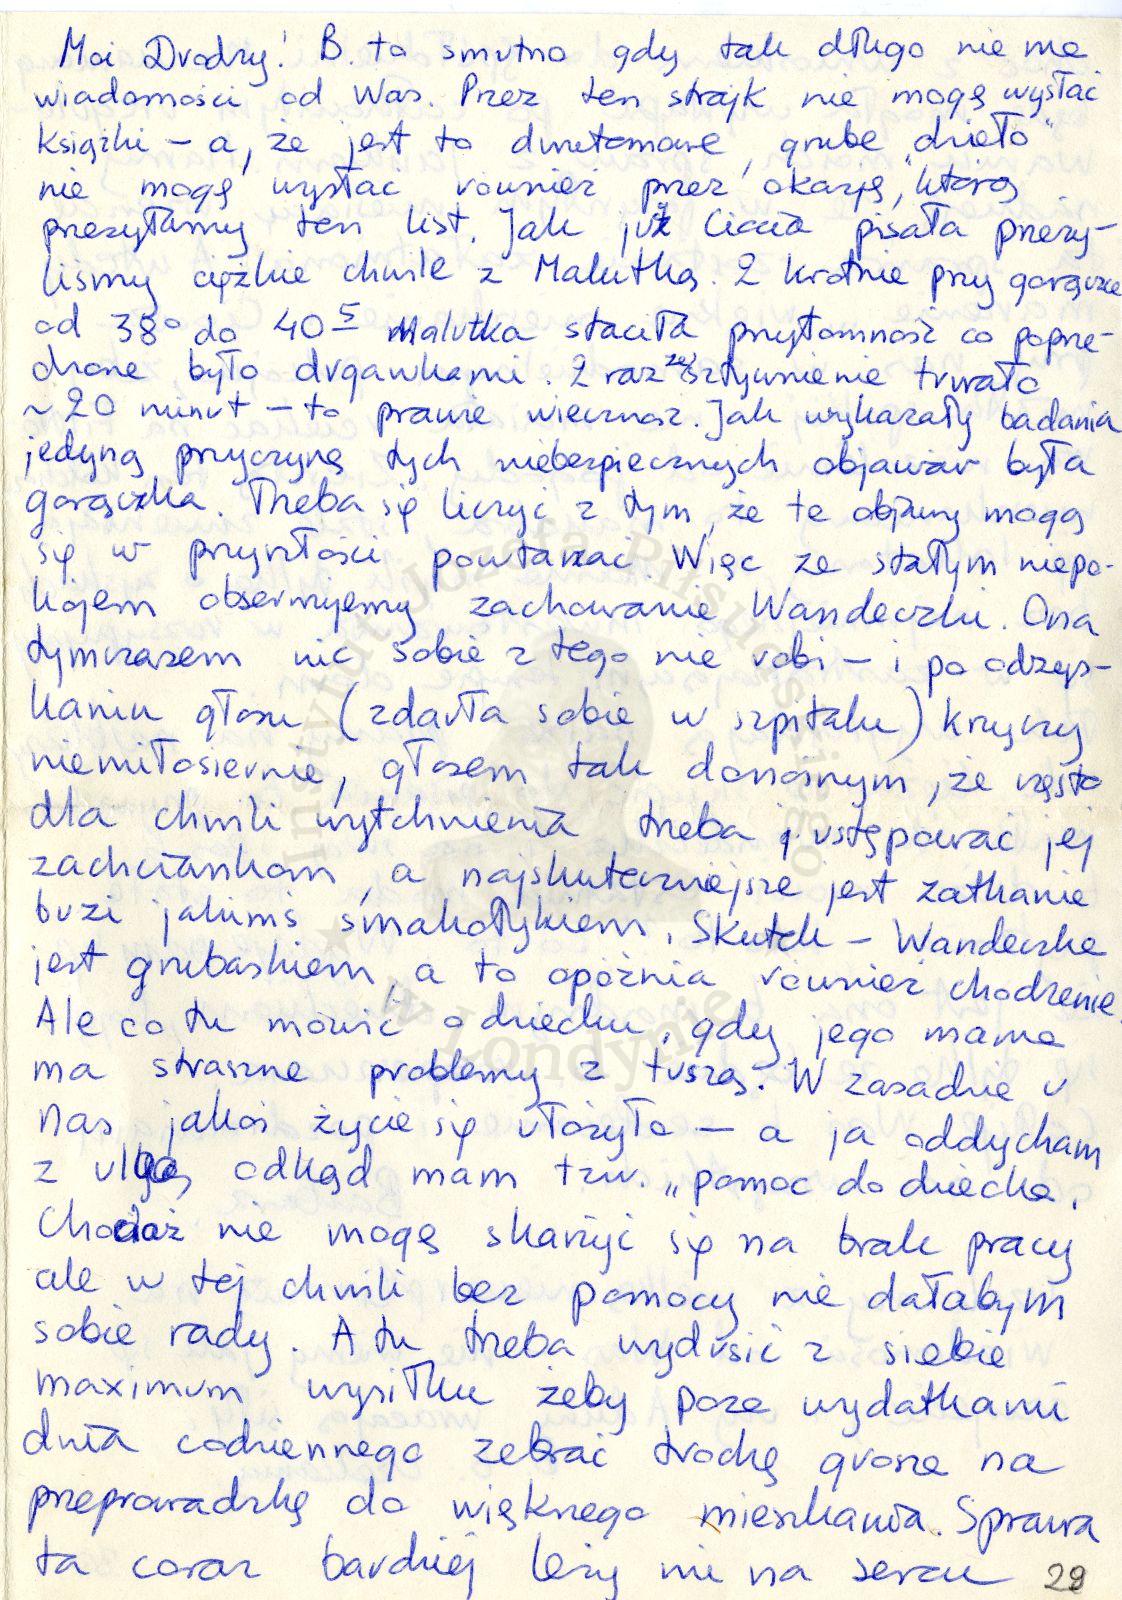 Moi Drodzy! B. to smutno gdy tak długo nie ma
wiadomości od Was. Przez ten strajk nie mogę wysłać
książki – a, że jest to dwutomowe, grube „dzieło"
nie mogę wysłać również przez okazję, którą
przesyłamy ten list. Jak już Ciocia pisała przeży-
liśmy ciężkie chwile z Malutką. 2 krotnie przy gorączce
od 38° do 40⁵ Malutka straciła przytomność co poprze-
dzone było drgawkami. 2 raz zesztywnienie trwało
~ 20 minut – to prawie wieczność. Jak wykazały badania
jedyną przyczyną tych niebezpiecznych objawów była
gorączka. Trzeba się liczyć z tym, że te objawy mogą
się w przyszłości powtarzać. Więc ze stałym niepo-
kojem obserwujemy zachowanie Wandeczki. Ona
tymczasem nic sobie z tego nie robi – i po odzys-
kaniu głosu (zdarła sobie w szpitalu) krzyczy
niemiłosiernie, głosem tak donośnym, że często
dla chwili wytchnienia trzeba ustępować jej
zachciankom, a najskuteczniejsze jest zatkanie
buzi jakimś smakołykiem. Skutek – Wandeczka
jest grubaskiem, a to opóźnia również chodzenie.
Ale co tu mówić o dziecku, gdy jego mama
ma straszne problemy z tuszą. W zasadzie u
nas jakoś życie się ułożyło – a ja oddycham
z ulgą odkąd mam tzw. „pomoc do dziecka.
Chociaż nie mogę skarżyć się na brak pracy
ale w tej chwili bez pomocy nie dałabym
sobie rady. A tu trzeba wydusić z siebie
maximum wysiłku żeby poza wydatkami
dnia codziennego zebrać trochę grosza na
przeprowadzkę do większego mieszkania. Sprawa
ta coraz bardziej leży mi na sercu
Instytut Józefa Piłsudskiego
w Londynie